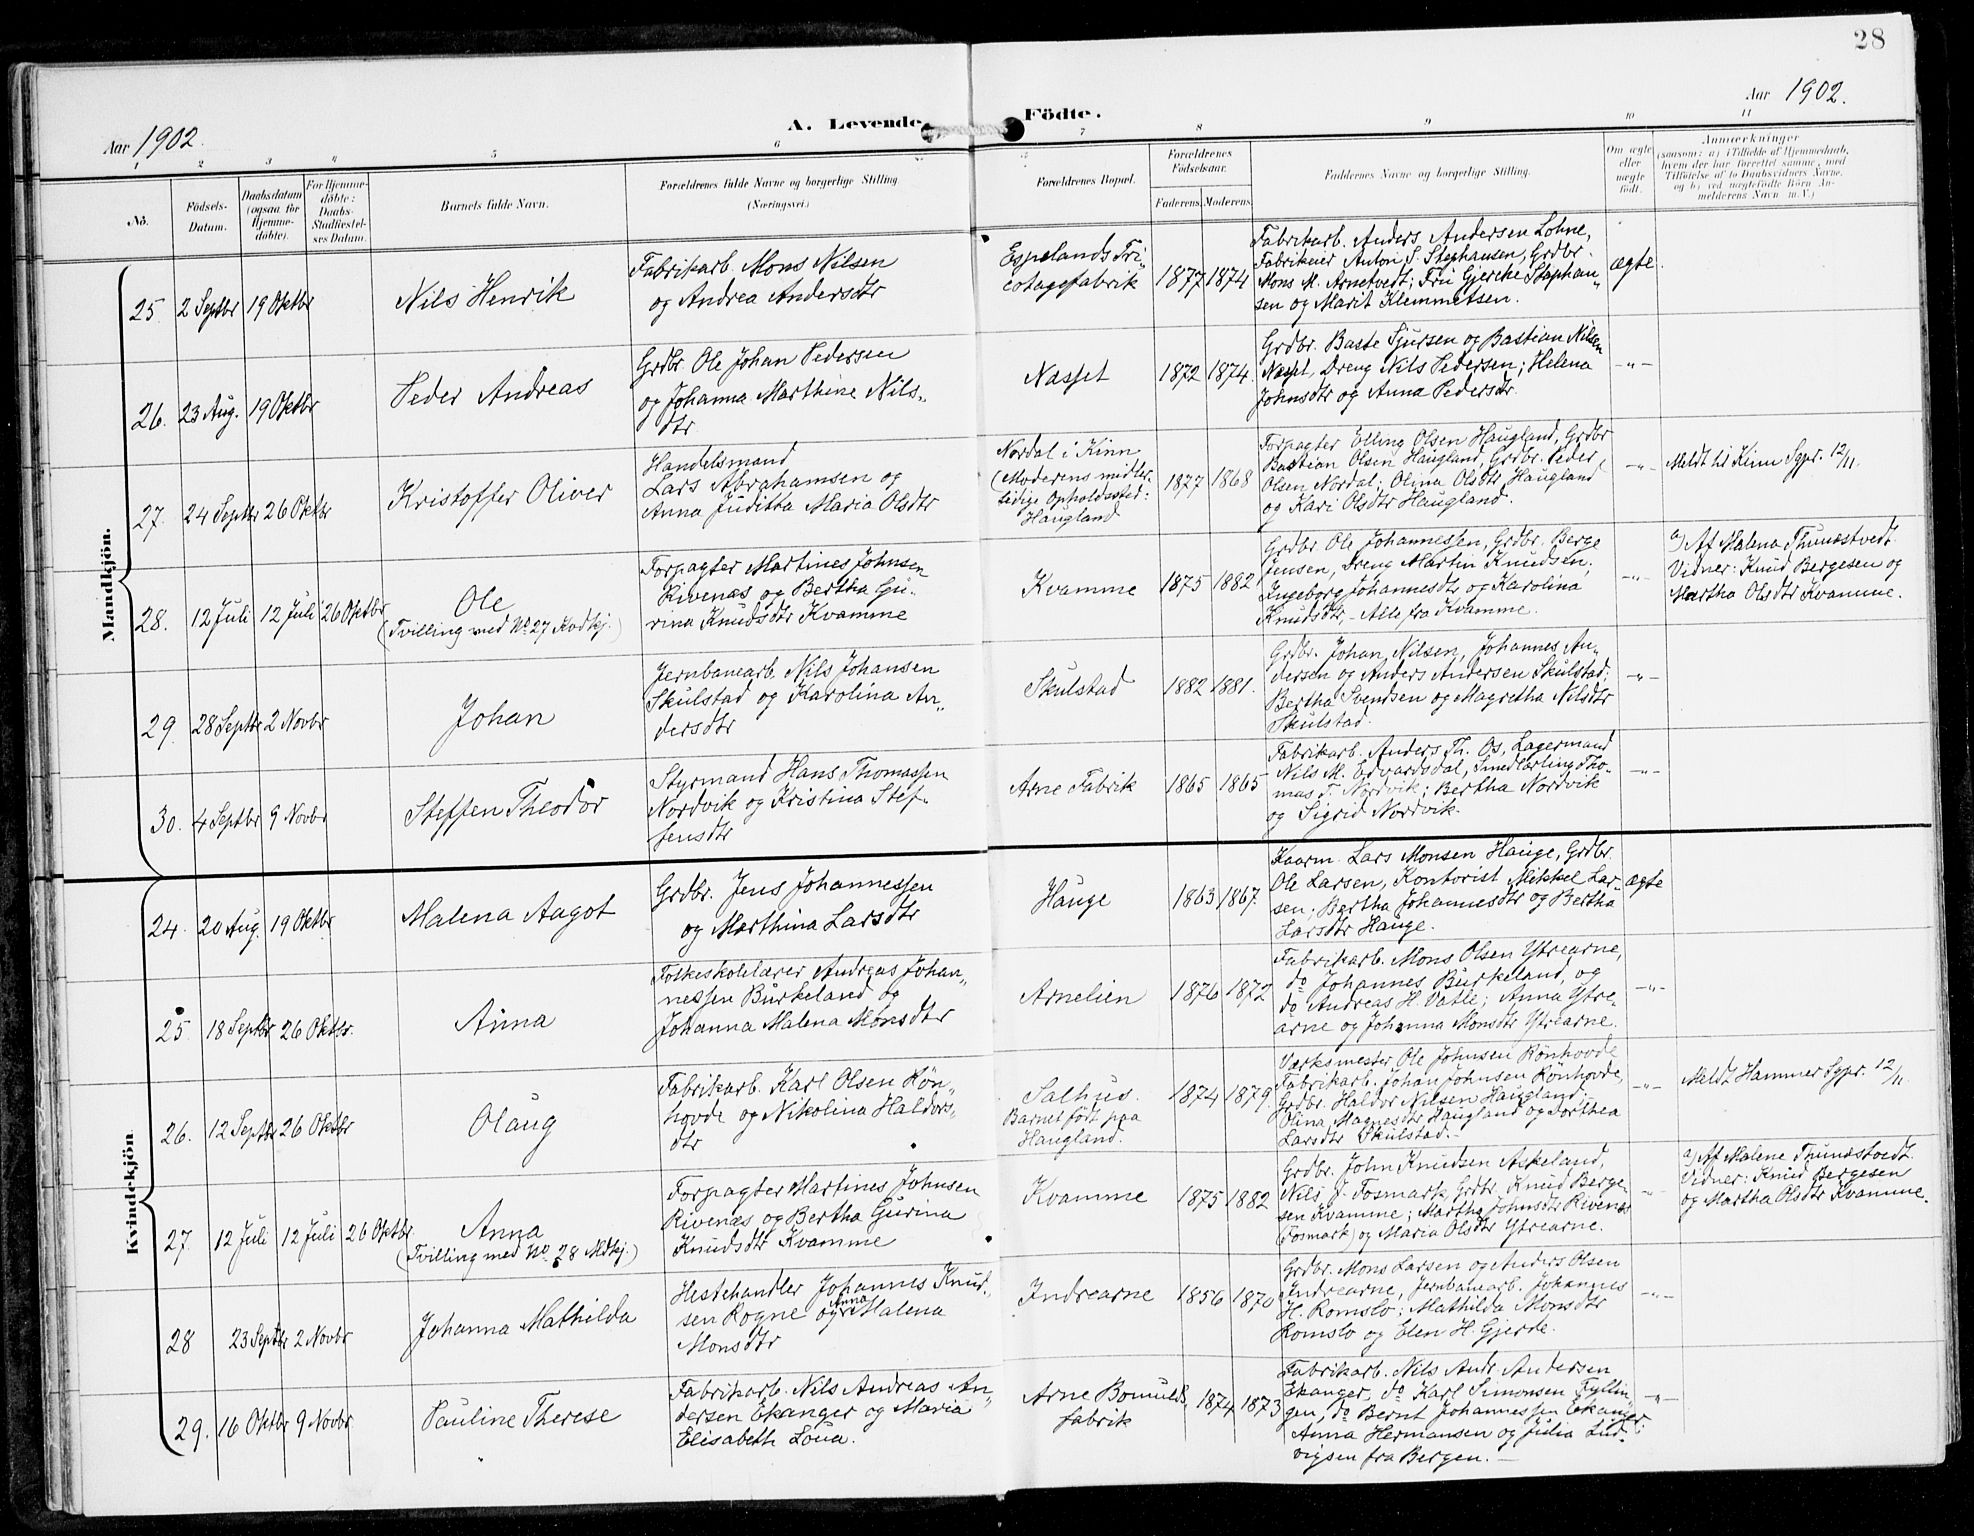 28
Aar 1902.
A. Levende
Födte.
Aar 1902.
1 2 3 4 5 6 7 8 9 10 11
Nö.
Födsels-
Datum.
Daabsdatum
(ogsaa for
Hjemme-
döbte).
For Hjemme-
döbte:
Daabs-
Stadfæstel-
ses Datum.
Barnets fulde Navn.
Forældrenes fulde Navne og borgerlige Stilling
(Næringsvei.)
Forældrenes Bopæl.
Forældrenes
Födselsaar.
Faderens. Moderens.
Faddernes Navne og borgerlige Stilling.
Om ægte
eller
uægte
födt.
Anmærkninger
(saasom: a) i Tilfælde af Hjemmedaab,
hvem der har forrettet samme, med
Tilföielse af to Daabsvidners Navne,
og b) ved uægtefödte Börn An-
melderens Navn m.V.)
Mandkjön.
25. 2 Septbr 19 Oktbr
Nils Henrik
Fabrikarb. Mons Nilsen
og Andrea Andersdtr
Espelands Tri-
cotagefabrik
1877 1874
Fabrikarb. Anders Andersen Lohne,
Fabrikeier Anton S. Stephansen, Grdbr.
Mons M. Arnetvedt; Fru Gjerche Stephan-
sen og Marit Klemmetsen.
ægte.
26. 23 Aug. 19 Oktbr
Peder Andreas
Grdbr. Ole Johan Pedersen
og Johanna Marthine Nils-
dtr
Naset
1872 1874.
Grdbr. Baste Sjursen og Bastian Nilsen
Naset, Dreng Nils Pedersen; Helena
Johnsdtr og Anna Pedersdtr.
-"-
27. 24 Septbr 26 Oktbr
Kristoffer Oliver
Handelsmand
Lars Abrahamsen og
Anna Juditta Maria Olsdtr
Nordal i Kinn
(Moderens midler-
tidige Opholdssted:
Haugland
1877 1868
Forpagter Elling Olsen Haugland, Grdbr
Bastian Olsen Haugland, Grdbr. Peder
Olsen Nordal; Olina Olsdtr Haugland
og Kari Olsdtr Haugland.
-"-
Meldt til Kinn Sgpr. 12/11.
28. 12 Juli 12 Juli 26 Oktbr
Ole
(Tvilling med No 27 Kvdkj.)
Forpagter Martines Johnsen
Rivenæs og Bertha Gu-
rina Knudsdtr Kvamme
Kvamme
1875 1882
Grdbr. Ole Johannessen, Grdbr. Berge
Jensen, Dreng Martin Knudsen,
Ingeborg Johannesdtr og Karolina
Knudsdtr, - Alle fra Kvamme.
-"-
a) Af Malena Thunæstvedt.
Vidner: Knud Bergesen og
Martha Olsdtr Kvamme.
29. 28 Septbr 2 Novbr
Johan
Jernbanearb. Nils Johansen
Skulstad og Karolina An-
dersdtr
Skulstad
1882 1881.
Grdbr. Johan Nilsen, Johannes An-
dersen og Anders Andersen Skulstad;
Bertha Svendsen og Magretha Nilsdtr
Skulstad.
-"-
30. 4 Septbr 9 Novbr
Steffen Theodor
Styrmand Hans Thomassen
Nordvik og Kristina Stef-
fensdtr
Arne Fabrik
1865 1865
Fabrikarb. Anders Th. Os, Lagermand
Nils M. Edvardsdal, Smedlærling Tho-
mas T. Nordvik; Bertha Nordvik
og Sigrid Nordvik.
-"-
Kvindekjön
24. 20 Aug. 19 Oktbr
Malena Aagot
Grdbr. Jens Johannessen
og Marthina Larsdtr
Hauge
1863 1867.
Kaarm. Lars Monsen Hauge, Grdbr.
Ole Larsen, Kontorist Mikkel Lar-
sen; Bertha Johannesdtr og Bertha
Larsdtr Hauge.
ægte
25. 18 Septbr 26 Oktbr.
Anna
Folkeskolelærer Andreas Johan-
nessen Burkeland og
Johanna Malena Monsdtr
Arnelien
1876 1872
Fabrikarb. Mons Olsen Ytrearne,
do Johannes Burkeland, og
do Andreas H. Vatle; Anna Ytre-
arne og Johanna Monsdtr Ytrearne.
-"-
26. 12 Septbr 26 Oktbr
Olaug
Fabrikarb. Karl Olsen Rön-
hovde og Nikolina Haldors-
dtr
Salhus.
Barnet födt paa
Haugland.
1874 1879.
Værksmester Ole Johnsen Rönhovde
Fabrikarb. Johan Johnsen Rönhovde,
Grdbr. Haldor Nilsen Haugland;
Olina Magnesdtr Haugland og Dorthea
Larsdtr Skulstad.-
-"-
Meldt Hammer Sgpr. 12/11.
27. 12 Juli 12 Juli 26 Oktbr.
Anna
(Tvilling med No. 28 Mdkj.)
Forpagter Martines Johnsen
Rivenæs og Bertha Gurina
Knudsdtr Kvamme
Kvamme
1875 1882
Grdbr. John Knudsen Askeland,
Nils J. Fosmark, Grdbr. Knud Berge-
sen Kvamme; Martha Johnsdtr Rivenæs
(Fosmark) og Maria Olsdtr Ytrearne.
"-
a) Af Malene Thunæstvedt.
Vidner: Knud Bergesen
og Martha Olsdtr Kvamme.
28 23 Septbr 2 Novbr
Johanna Mathilda
Hestehandler Johannes Knud-
sen Rogne og Anna Malena
Monsdtr
Indrearne
1856 1870
Grdbr. Mons Larsen og Anders Olsen
Indrearne, Jernbanearb. Johannes
H. Romslo; Mathilda Monsdtr
Romslo og Elen H. Gjerde.
-"-
29. 16 Oktbr 9 Novbr
Pauline Therese
Fabrikarb. Nils Andreas An-
dersen Ekanger og Maria
Elisabeth Loua.
Arne Bomulds-
fabrik
1874 1873
Fabrikarb. Nils Andr. Andersen
Ekanger, do Karl Simonsen Fyllin-
gen, do Bernt Johannessen Ekanger;
Anna Hermansen og Julia Lud-
vigsen fra Bergen.-
-"-